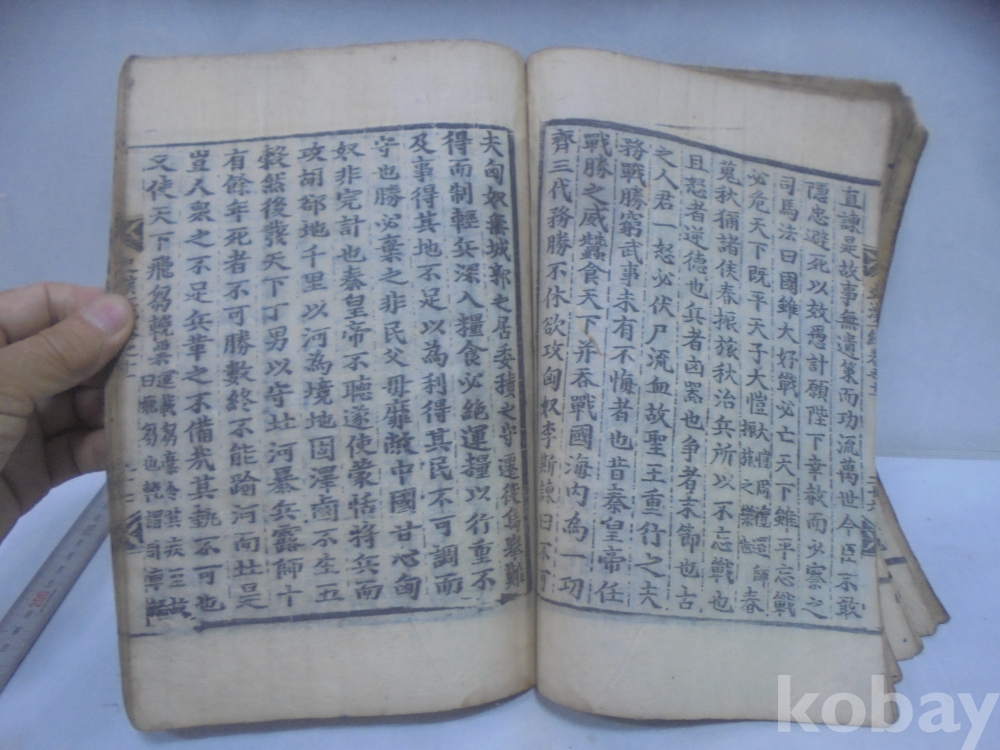 直諫是故事無遺策而功流萬世今臣不敢
隱忠避死以效愚計願陛下幸赦而少察之
司馬法曰國雖大好戰必亡天下雖平忘戰
必危天下旣平天子大愷 大愷周禮還師振旅之樂也 春
蒐秋獮諸侯春振旅秋治兵所以不忘戰也
且怒者逆德也兵者凶器也爭者末節也古
之人君一怒必伏尸流血故聖王重行之夫
務戰勝窮武事未有不悔者也昔秦皇帝任
戰勝之威蠶食天下并吞戰國海內為一功
齊三代務勝不休欲攻匈奴李斯諫曰不可
夫匈奴無城郭之居委積之守遷徙鳥舉難
得而制輕兵深入糧食必絕運糧以行重不
及事得其地不足以為利得其民不可調而
守也勝必棄之非民父母靡敝中國甘心匈
奴非完計也秦皇帝不聽遂使蒙恬將兵而
攻胡郤地千里以河為境地固澤鹵不生五
穀然後發天下丁男以守北河暴兵露師十
有餘年死者不可勝數終不能踰河而北是
豈人衆之不足兵革之不備哉其勢不可也
又使天下飛芻輓粟
kobay